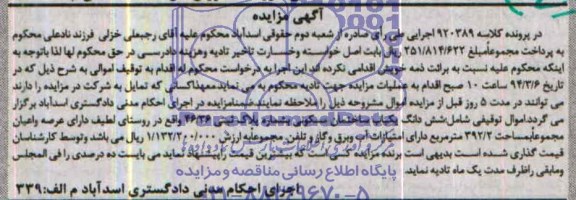 آگهی مزایده
در پرونده کلاسه ۹۲۰۳۸۹ اجرایی طی رای صادره از شعبه دوم حقوقی اسدآباد محکوم علیه آقای رجبعلی خزلی فرزند نادعلی محکوم
به پرداخت مجموعأمبلغ ۲۵۱/۸۱۴/۶۲۲ ریال بابت اصل خواسته وخسارت تاخیر تادیه وهزینه دادرسی در حق محکوم لها لذا باتوجه به
اینکه محکوم علیه نسبت به برائت ذمه خویش اقدامی نکرده اند این اجرا به درخواست محکوم له اقدام به توقیف اموالی به شرح ذیل که در
تاریخ ۹۴/۳/۶ ساعت ۱۰ صبح اقدام به عملیات مزایده جهت تادیه محکوم به می نماید معهذاکسانی که تمایل به شرکت در مزایده را دارند
می توانند در مدت ۵ روز قبل از مزایده اموال مشروحه ذیل را ملاحظه نمایند ضمنامزایده در اجرای احکام مدنی دادگستری اسدآباد برگزار
می گردد.اموال توقیفی شامل:شش دانگ یکباب ساختمان مسکونی بشماره پلاک ثبتی ۴۶/۳۶ واقع در روستای لطیف دارای عرصه واعیان
مجموعأبمساحت ۳۹۲/۲ مترمربع دارای امتیازات آب وبرق وگاز و تلفن مجموعأبه ارزش ۱/۱۳۲/۲۰۰/۰۰۰ ریال می باشد وتوسط کارشناسان
قیمت گذاری شده است بدیهی است برنده مزایده کسی است که بیشترین قیمت راپیشنهاد نماید می بایست ده درصدی را فی المجلس
ومابقی راظرف مدت یک ماه تادیه نماید.
اجرای احکام مدنی دادگستری اسدآباد م الف:۳۳۹
پایگاه اطلاع رسانی مناقصه و مزایده